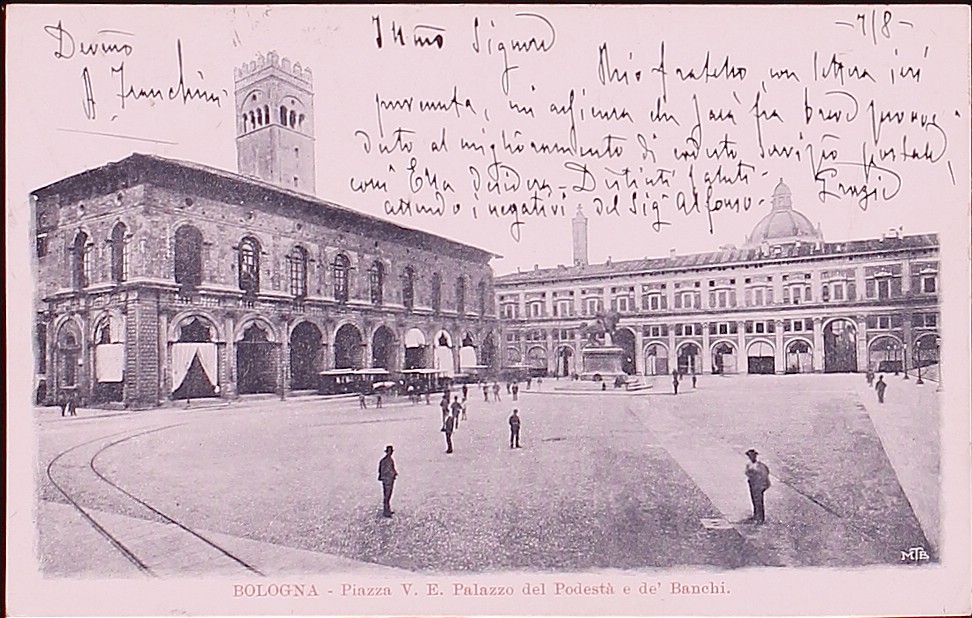 7/8
Ill.mo Signore
Mio fratello, con lettera ieri
pervenuta, mi assicura che sarà fra breve provve-
duto al miglioramento di codesto servizio postale,
com' Ella desidera. Distinti saluti.
attendo i negativi del Sig. Alfonso. Grazie
Dev.mo
A. Franchini
MTB
BOLOGNA - Piazza V. E. Palazzo del Podestà e de' Banchi.